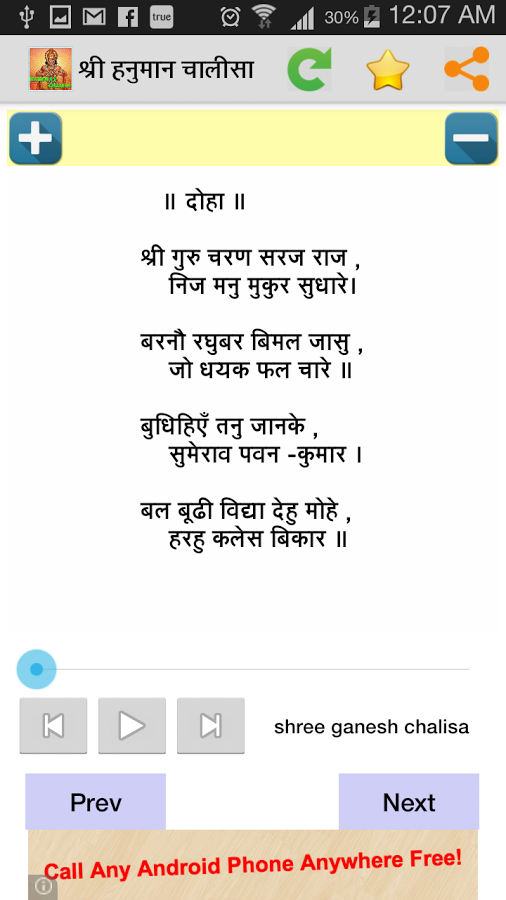 true
30%
12:07 AM
श्री हनुमान चालीसा
॥ दोहा ॥
श्री गुरु चरण सरज राज ,
निज मनु मुकुर सुधारे।
बरनौ रघुबर बिमल जासु ,
जो धयक फल चारे ॥
बुधिहिएँ तनु जानके ,
सुमेराव पवन -कुमार ।
बल बूढी विद्या देहु मोहे ,
हरहु कलेस बिकार ॥
shree ganesh chalisa
Prev
Next
Call Any Android Phone Anywhere Free!